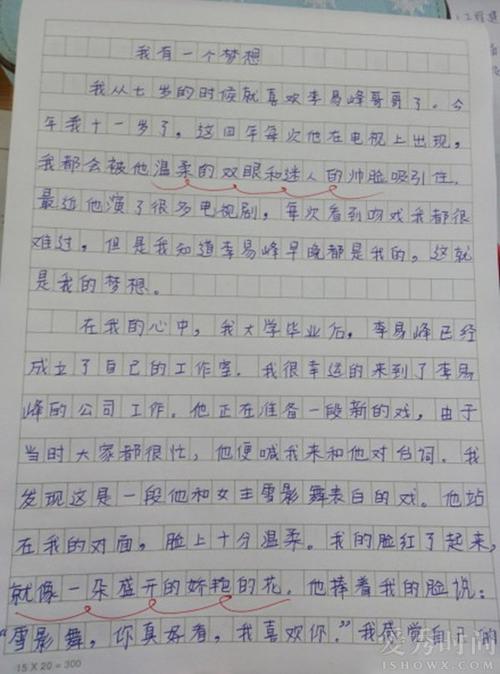 我有一个梦想
我从七岁的时候就喜欢李易峰哥哥了。今
年我十一岁了，这四年每次他在电视上出现，
我都会被他温柔的双眼和迷人的帅脸吸引住.
最近他演了很多电视剧，每次看到吻戏我都很
难过，但是我知道李易峰早晚都是我的，这就
是我的梦想。
在我的心中，我大学毕业后，李易峰已经
成立了自己的工作室.我很幸运的来到了李易
峰的公司工作。他正在准备一段新的戏，由于
当时大家都很忙，他便喊我来和他对台词。我
发现这是一段他和女主雪影舞表白的戏。他站
在我的对面，脸上十分温柔。我的脸红了起来，
就像一朵盛开的娇艳的花。他捧着我的脸说：
“雪影舞，你真好看，我喜欢你.”我感觉自己的
15 X 20 = 300
爱秀时间
ISHOWX.COM